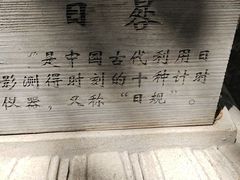 日晷
"是中国古代利用日
影测得时刻的十种计时
仪器,又称"日规"。